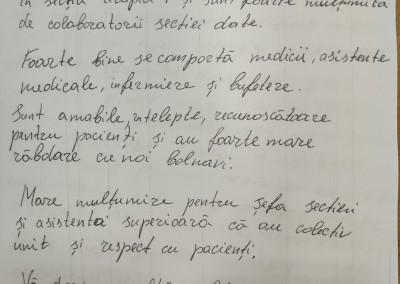 în secția terapia 1 și sunt foarte mulțumită
de colaboratorii secției date.
Foarte bine se comportă medicii, asistente
medicale, infermiere și bufetere.
Sunt amabile, ințelepte, recunoscătoare
pentru pacienți și au foarte mare
răbdare cu noi bolnavi.
Mare mulțumire pentru șefa secției
și asistenta superioară că au colectiv
unit și respect cu pacienți.